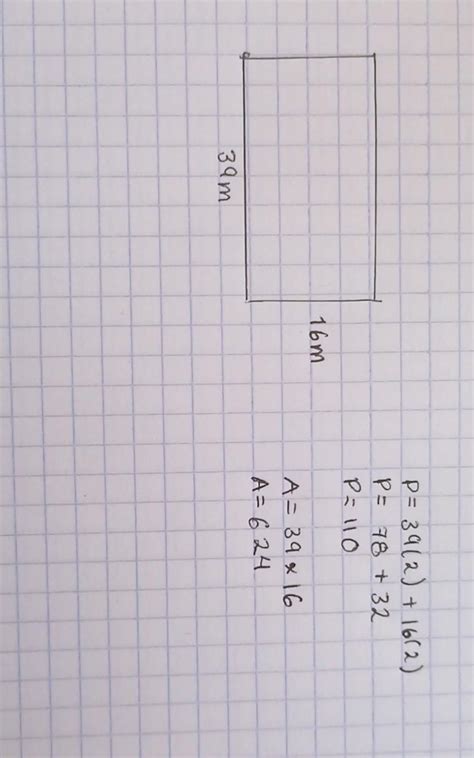 39m
16m
P = 39(2) + 16(2)
P = 78 + 32
P = 110
A = 39 x 16
A = 624